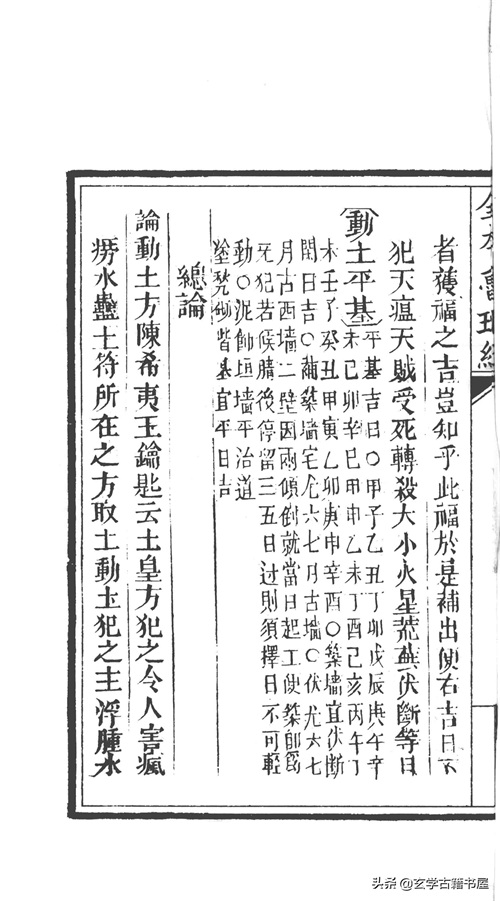 者獲福之吉豈知乎此福於是補出使右吉日不
犯天瘟天賊受死轉殺大小火星荒蕪伏斷等日
動土平基
平基吉日○甲子乙丑丁卯戊辰庚午辛
未己卯辛巳甲申乙未丁酉己亥丙午丁
未壬子癸丑甲寅乙卯庚申辛酉○築墻宜伏斷
閉日吉○補築墻宅尤六七月古墻○伏尤六七
月古西墻二壁因雨傾倒就當日起工便築即爲
死犯若候晴後停留三五日过則須擇日不可輕
動○泥飾垣墻平治道
塗甃砌皆基宜平日吉
總論
論動土方陳希夷玉鑰匙云土皇方犯之令人害瘋
癆水蠱土符所在之方取土動土犯之主浮腫水
頭條@玄学古籍书屋